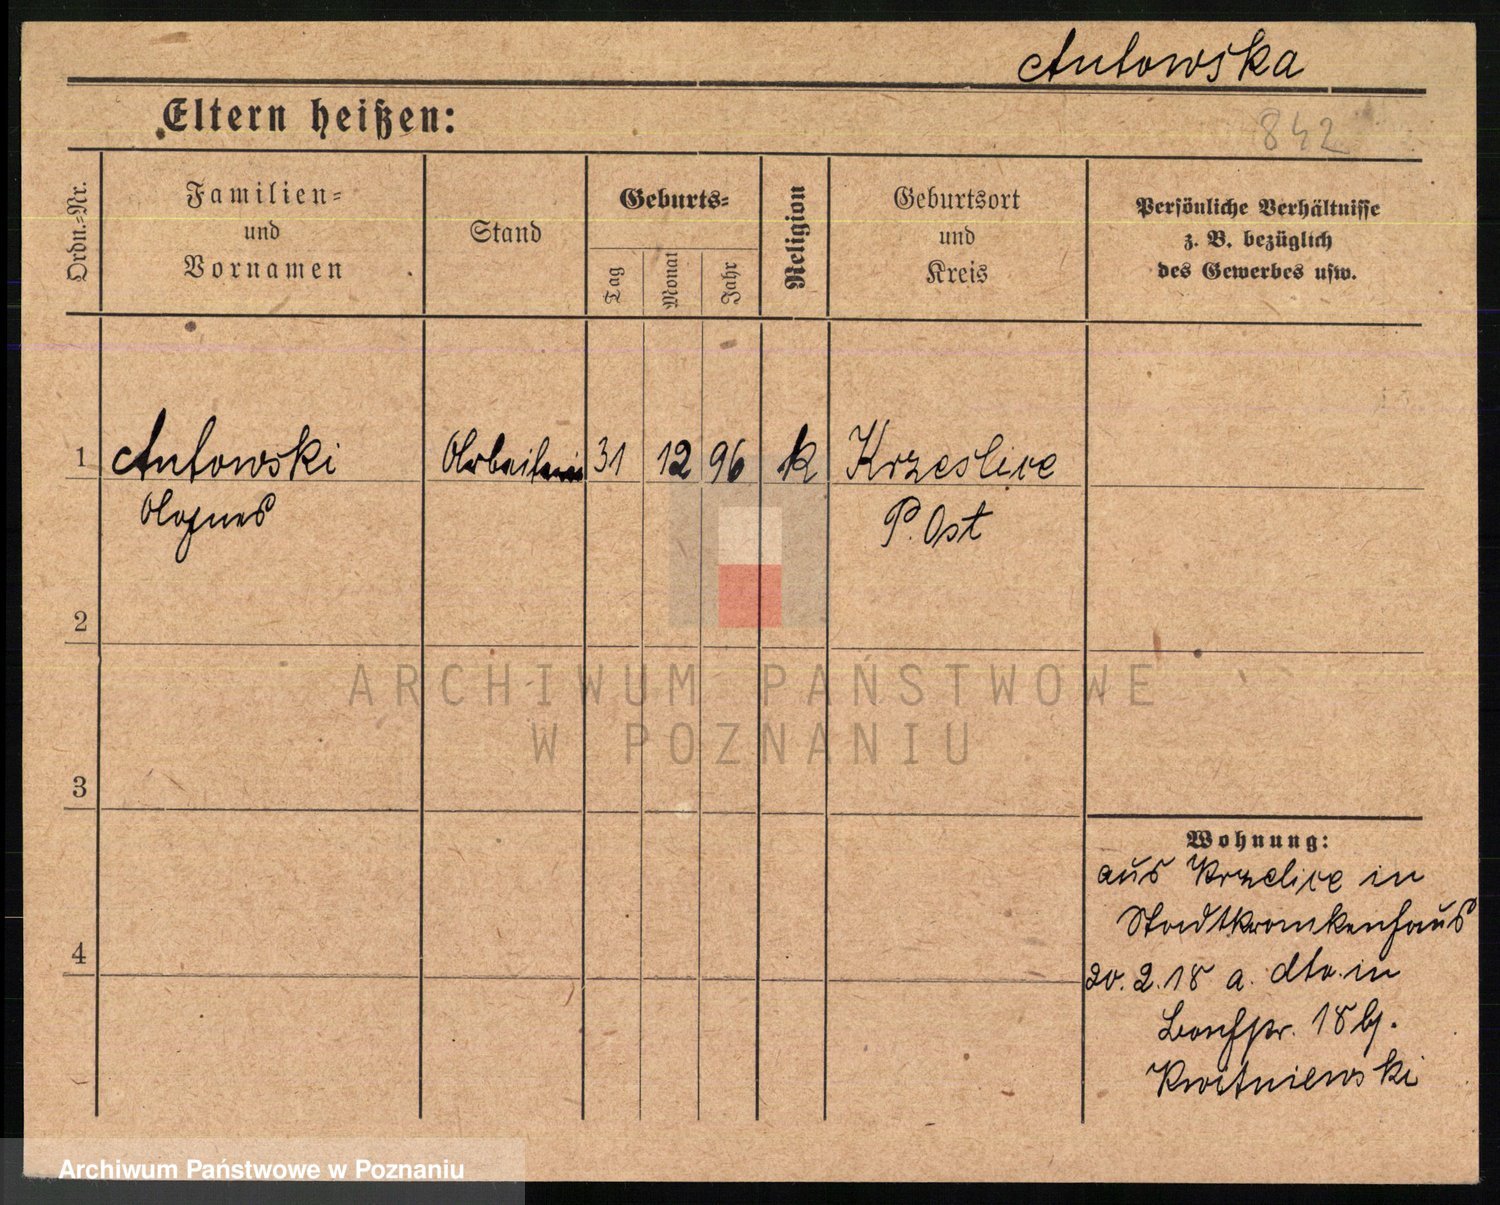 Antowska
842
Eltern heißen:
Ordn.=Nr.
Familien=
und
Vornamen
Stand
Geburts=
Tag
Monat
Jahr
Religion
Geburtsort
und
Kreis
Persönliche Verhältnisse
z. B. bezüglich
des Gewerbes usw.
1 Antowski Arbeiterin 31 12 96 k Krzeslice
Agnes P. Ost
2
3
4
Wohnung:
aus Krzelice in
Stadtkrankenhaus
20. 2. 18 a. dto. in
18 bj.
Kwitniewski
ARCHIWUM PAŃSTWOWE
W POZNANIU
Archiwum Państwowe w Poznaniu